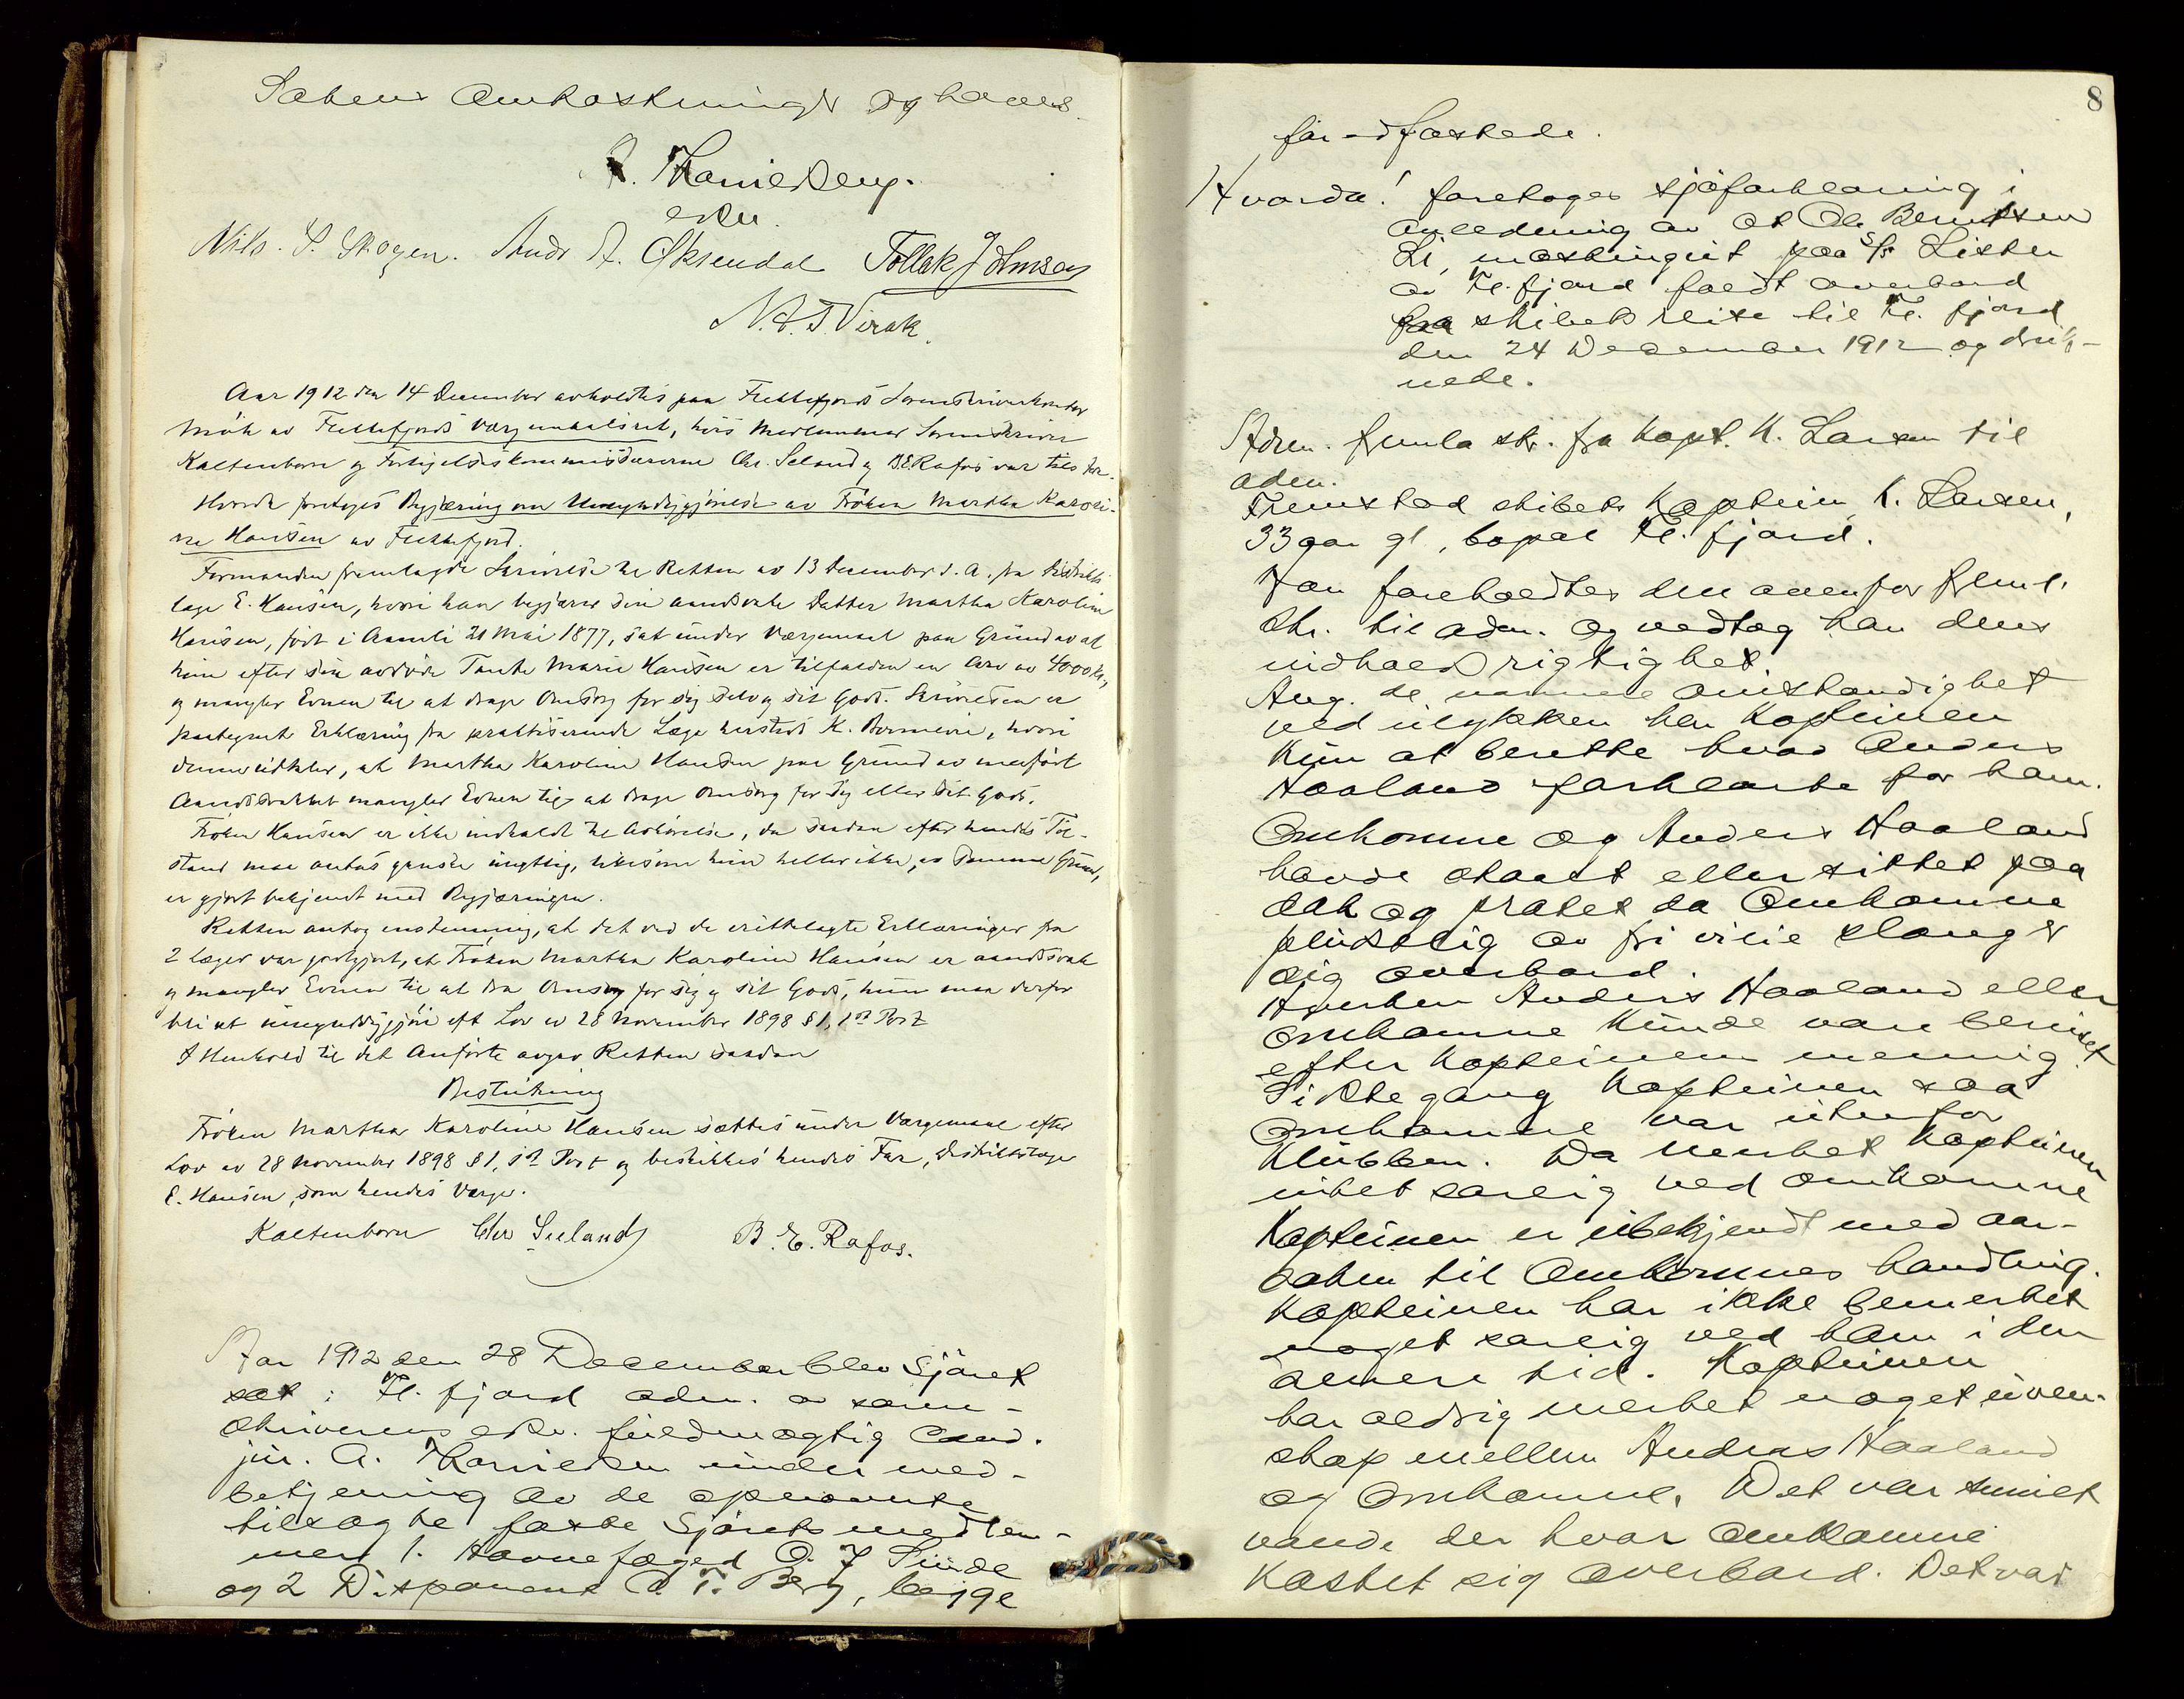 Sakens Omkostninger ophæves.
A. Thanielsen.
eskr
Nils. S. Skogen. Andr A. Øksendal Tollak Johnsen
N. A. T Virak.
Aar 1912 den 14 December avholdtes paa Flekkefjords Sorenskriverkontor
møte av Flekkefjords Værgemaalsret, hvis Medlemmer Sorenskriver
Kaltenborn og Forligelseskommissærerne Chr. Seland og B. E. Rafos var tilstede.
Hvorda foretoges Begjæring om Umyndiggjørelse av Frøken Martha Karoli-
ne Hansen av Flekkefjord.
Formanden fremlagde Skrivelse til Retten av 13 December d. A. fra Distrikts-
læge E. Hansen, hvori han begjærer sin aandssvake Datter Martha Karoline
Hansen, født i Aamli 21 Mai 1877, sat under Værgemaal paa Grund av at
hun efter sin avdøde Tante Marie Hansen er tilfalden en Arv av 4000 kr,
og mangler Evnen til at drage Omsorg for sig selv og sit Gods. Skrivelsen er
paategnet Erklæring fra praktiserende Læge hersteds K. , hvori
denne uttaler, at Martha Karoline Hansen paa Grund av medfødt
Aandssvakhet mangler Evnen til at drage Omsorg for sig eller sit Gods.
Frøken Hansen er ikke indkaldt til Avhørelse, da saadan efter hendes Til-
stand maa antas ganske unyttig, likesom hun heller ikke, av samme Grund,
er gjort bekjendt med Begjæringen.
Retten antog enstemmig, at det ved de fremlagte Erklæringer fra
2 Læger var godtgjort, at Frøken Martha Karoline Hansen er aandssvak
og mangler Evnen til at dra Omsorg for sig og sit Gods, hun maa derfor
bli at umyndiggjøre eft Lov av 28 November 1898 § 1, 1ste Post
I Henhold til det Anførte avgav Retten saadan
Beslutning
Frøken Martha Karoline Hansen sættes under Værgemaal efter
Lov av 28 November 1898 § 1, 1ste Post og beskikkes hendes Far, Distriktslæge
E. Hansen, som hendes Værge.
Kaltenborn Chr Seeland B. E. Rafos.
Aar 1912 den 28 December blev Sjøret
sat i Fl. fjord adm. av soren-
skriverens eskr. fuldmægtig Cand.
jur. A. Thanielsen under med-
betjening av de opnævnte
tilsagte faste Sjøretsmedlem-
mer 1. Havnefoged O. J Sunde
og 2 Disponent A. T. Berg, begge
8
før edfæstede.
Hvorda! foretoges sjøforklaring i
anledning av at Ole Berntsen
Li, maskingut paa S/s Lister
av Fl. fjord faldt overbord
paa skibets reise til Fl. fjord
den 24 December 1912 og druk-
nede.
Adm. fremla skr. fra kapt. K. Larsen til
adm.
Fremstod skibets Kaptein K. Larsen,
33 aar gl, bopæl Fl. fjord.
Han foreholdtes den ovenfor freml.
skr. til adm. og vedtog han dens
indholds rigtighet.
Ang. de nærmere omstændighet
ved ulykken har Kapteinen
kun at berette hvad Anders
Haaland forklarte for ham.
Omkomne og Anders Haaland
havde staat eller sittet paa
dæk og pratet da Omkomne
pludselig av fri vilie slænger
sig overbord.
Hverken Anders Haaland eller
omkomne kunde være beruset
efter kapteinens mening.
Sidste gang Kapteinen saa
Omkomne var utenfor
klubben. Da merket Kapteinen
intet særlig ved omkomne
Kapteinen er ubekjendt med aar-
saken til Omkomnes handling.
Kapteinen har ikke bemerket
noget særlig ved ham i den
senere tid. Kapteinen
har aldrig merket noget uven-
skap mellem Andreas Haaland
og Omkomne. Det var smult
vande der hvor Omkomne
kastet sig overbord. Det var